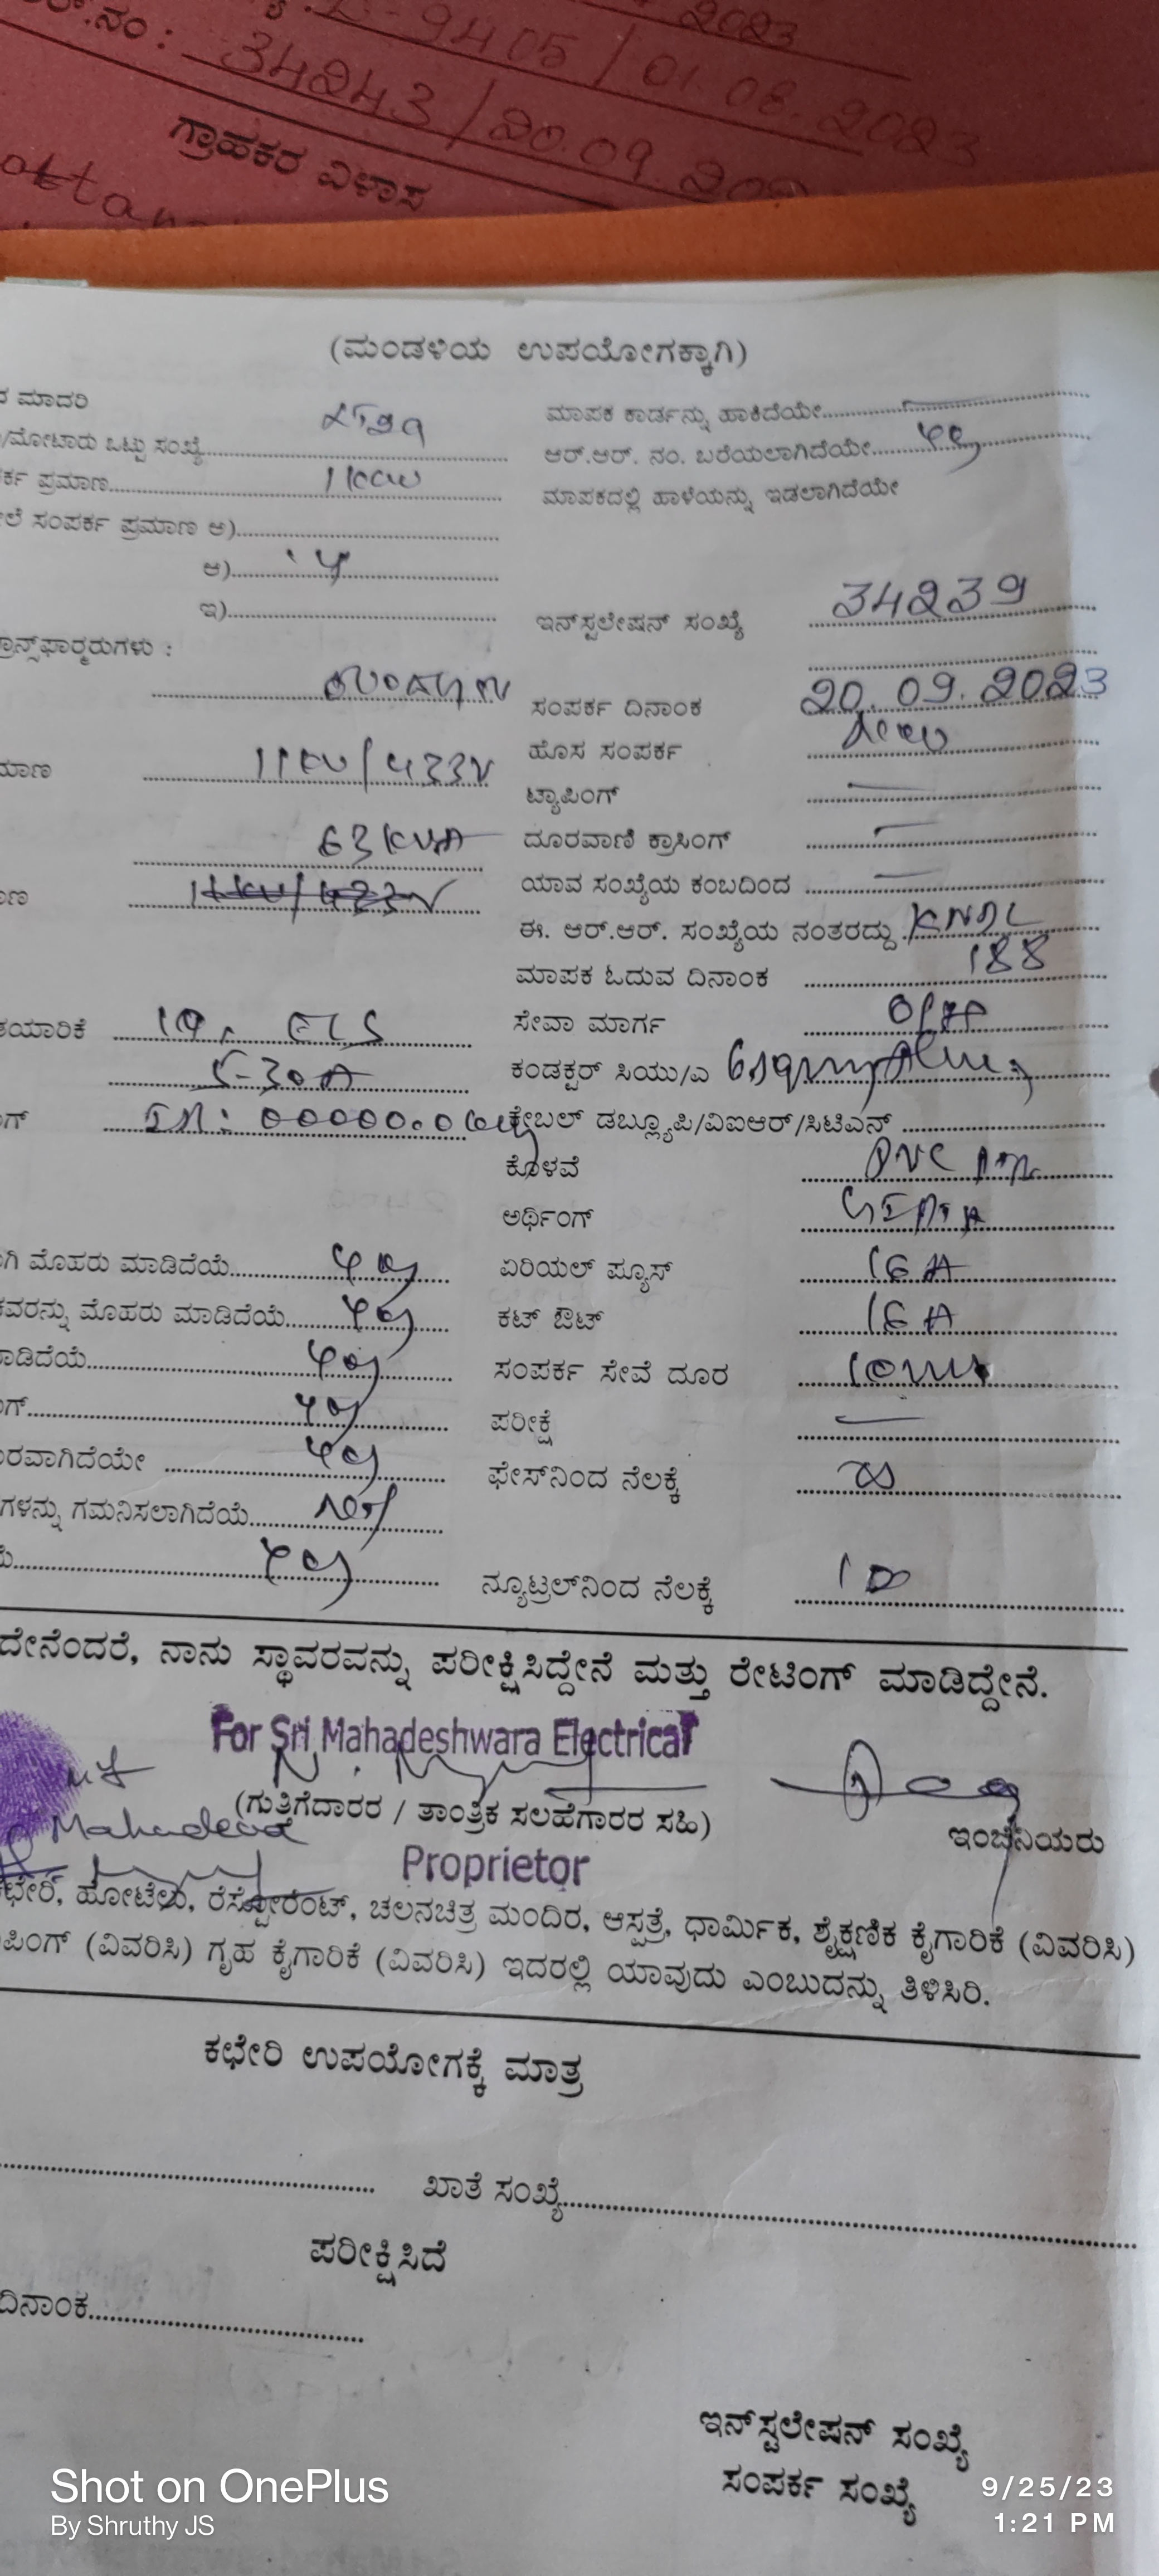 2023
9405 / 01.08.2023
.ನಂ : 34243 / 20.09.202
ಗ್ರಾಹಕರ ವಿಳಾಸ
(ಮಂಡಳಿಯ ಉಪಯೋಗಕ್ಕಾಗಿ)
ಮಾದರಿ
ಮಾಪಕ ಕಾರ್ಡನ್ನು ಹಾಕಿದೆಯೇ
/ಮೋಟಾರು ಒಟ್ಟು ಸಂಖ್ಯೆ
ಆರ್.ಆರ್. ನಂ. ಬರೆಯಲಾಗಿದೆಯೇ
ರ್ಕ ಪ್ರಮಾಣ 1 kw
ಮಾಪಕದಲ್ಲಿ ಹಾಳೆಯನ್ನು ಇಡಲಾಗಿದೆಯೇ
ಲೆ ಸಂಪರ್ಕ ಪ್ರಮಾಣ ಅ)
ಆ)
ಇ)
ಇನ್‌ಸ್ಟಲೇಷನ್ ಸಂಖ್ಯೆ 34239
ರಾನ್ಸ್‌ಫಾರ್ಮರುಗಳು :
ಸಂಪರ್ಕ ದಿನಾಂಕ 20.09.2023
ಹೊಸ ಸಂಪರ್ಕ New
ಮಾಣ 11KV/433V
ಟ್ಯಾಪಿಂಗ್
63 KVA
ದೂರವಾಣಿ ಕ್ರಾಸಿಂಗ್
ಾಣ 11KV/433V
ಯಾವ ಸಂಖ್ಯೆಯ ಕಂಬದಿಂದ
ಈ. ಆರ್.ಆರ್. ಸಂಖ್ಯೆಯ ನಂತರದ್ದು KNDL
ಮಾಪಕ ಓದುವ ದಿನಾಂಕ 188
ತಯಾರಿಕೆ
ಸೇವಾ ಮಾರ್ಗ
5-30A
ಕಂಡಕ್ಟರ್ ಸಿಯು/ಎ
ಗ್ IR: 00000.0
ಕೇಬಲ್ ಡಬ್ಲ್ಯೂಪಿ/ವಿಐಆರ್/ಸಿಟಿಎಸ್
ಕೊಳವೆ PVC
ಅರ್ಥಿಂಗ್
ಗಿ ಮೊಹರು ಮಾಡಿದೆಯೆ yes
ಏರಿಯಲ್ ಫ್ಯೂಸ್ 16 A
ಕವರನ್ನು ಮೊಹರು ಮಾಡಿದೆಯೆ yes
ಕಟ್ ಔಟ್ 16 A
ಾಡಿದೆಯೆ yes
ಸಂಪರ್ಕ ಸೇವೆ ದೂರ
ಗ್ yes
ಪರೀಕ್ಷೆ
ರವಾಗಿದೆಯೇ yes
ಫೇಸ್‌ನಿಂದ ನೆಲಕ್ಕೆ
ಗಳನ್ನು ಗಮನಿಸಲಾಗಿದೆಯೆ yes
yes
ನ್ಯೂಟ್ರಲ್‌ನಿಂದ ನೆಲಕ್ಕೆ
ದೇನೆಂದರೆ, ನಾನು ಸ್ಥಾವರವನ್ನು ಪರೀಕ್ಷಿಸಿದ್ದೇನೆ ಮತ್ತು ರೇಟಿಂಗ್ ಮಾಡಿದ್ದೇನೆ.
For Sri Mahadeshwara Electrical
(ಗುತ್ತಿಗೆದಾರರ / ತಾಂತ್ರಿಕ ಸಲಹೆಗಾರರ ಸಹಿ)
ಇಂಜಿನಿಯರು
Mahadeva
Proprietor
ಛೇರಿ, ಹೋಟೆಲು, ರೆಸ್ಟೋರೆಂಟ್, ಚಲನಚಿತ್ರ ಮಂದಿರ, ಆಸ್ಪತ್ರೆ, ಧಾರ್ಮಿಕ, ಶೈಕ್ಷಣಿಕ ಕೈಗಾರಿಕೆ (ವಿವರಿಸಿ)
ಪಿಂಗ್ (ವಿವರಿಸಿ) ಗೃಹ ಕೈಗಾರಿಕೆ (ವಿವರಿಸಿ) ಇದರಲ್ಲಿ ಯಾವುದು ಎಂಬುದನ್ನು ತಿಳಿಸಿರಿ.
ಕಛೇರಿ ಉಪಯೋಗಕ್ಕೆ ಮಾತ್ರ
ಖಾತೆ ಸಂಖ್ಯೆ
ಪರೀಕ್ಷಿಸಿದೆ
ದಿನಾಂಕ
ಇನ್‌ಸ್ಟಲೇಷನ್ ಸಂಖ್ಯೆ
ಸಂಪರ್ಕ ಸಂಖ್ಯೆ
Shot on OnePlus
By Shruthy JS
9/25/23
1:21 PM